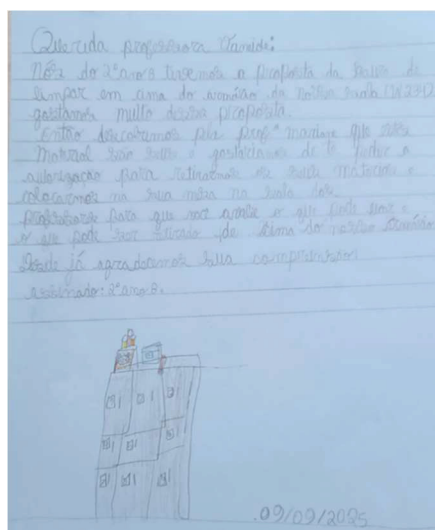 Querida professora
Nós do 2º ano B tivemos a proposta da
limpar em cima do armário da nossa sala
gostamos muito dessa proposta.
Então pela profª que esse
material são seus e gostaríamos de te pedir a
autorização para retirarmos os seus materiais e
colocarmos na sua mesa na sala dos
professores para que você avalie o que pode usar e
o que pode ser tirado de cima do nosso armário
Desde já agradecemos sua compreensão
assinado: 2º ano B.
09/09/2025